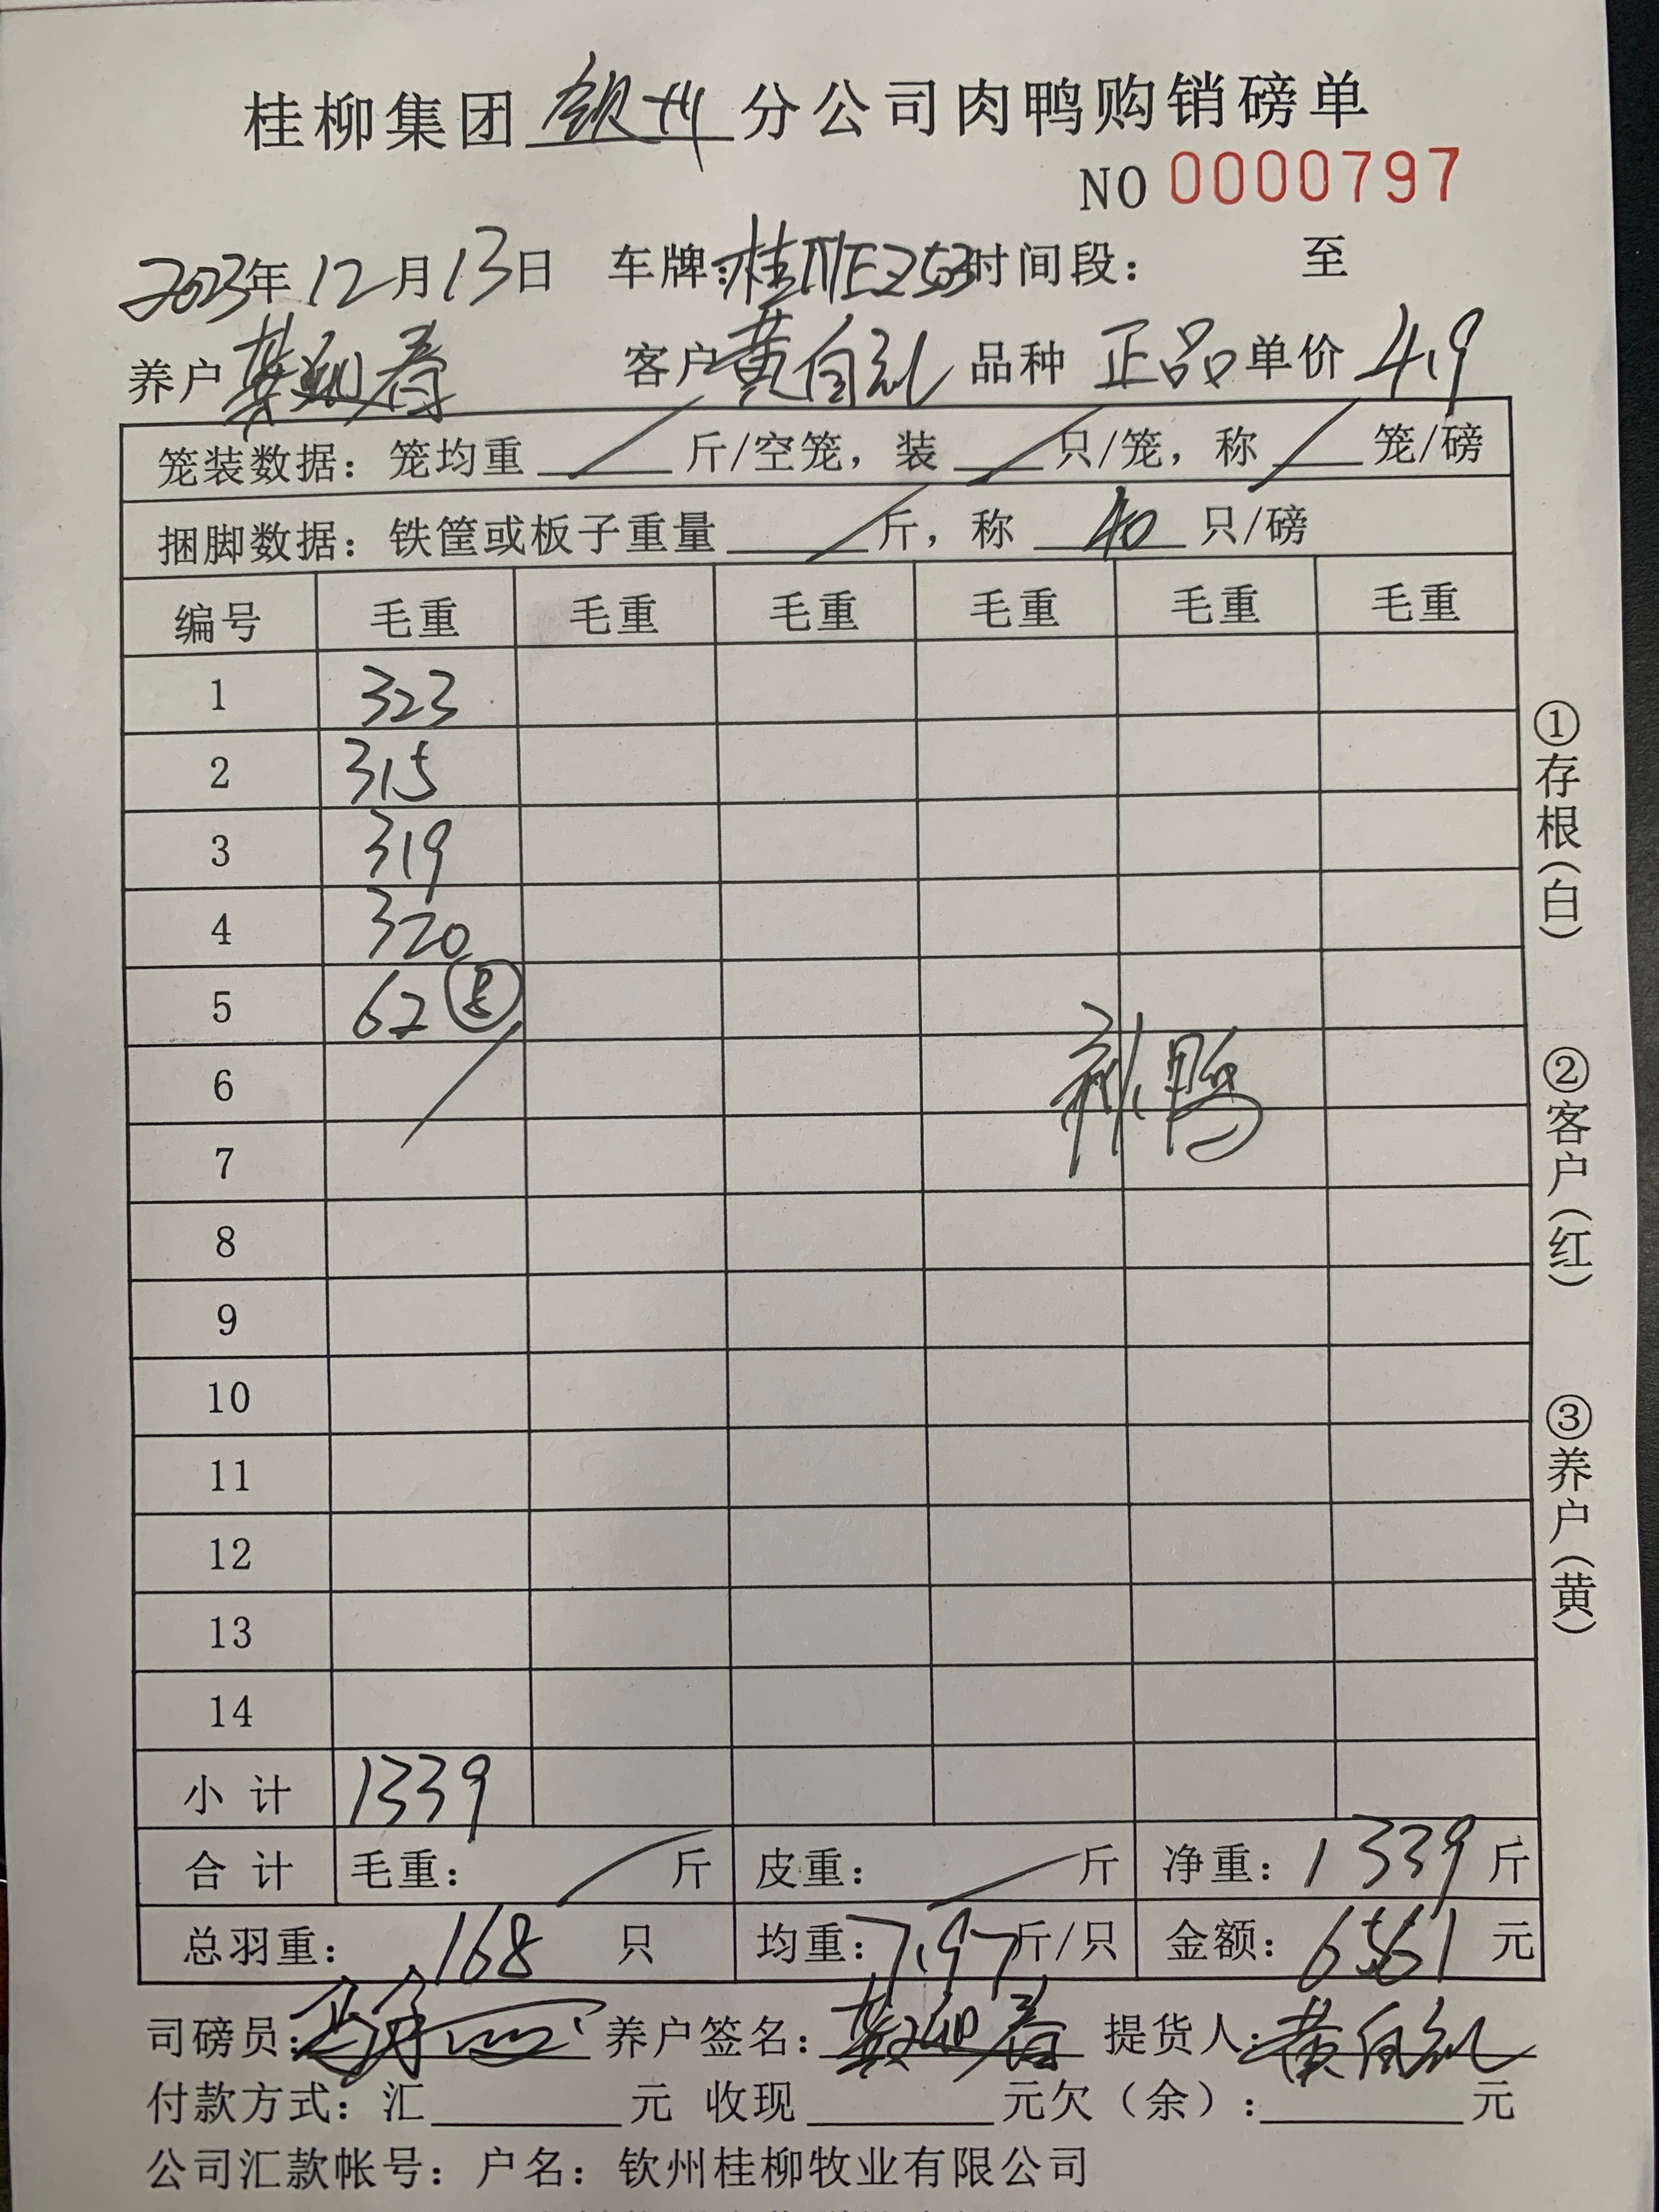 桂柳集团钦州分公司肉鸭购销磅单
NO 0000797
2023年12月13日 车牌:桂NEZ53时间段: 至
养户 春 客户黄自礼 品种 正品 单价 4.9
笼装数据:笼均重 / 斤/空笼,装 / 只/笼,称 / 笼/磅
捆脚数据:铁筐或板子重量 / 斤,称 40 只/磅
编号 毛重 毛重 毛重 毛重 毛重 毛重
1 323
2 315
3 319
4 320
5 62 ⑧
6
鸭
7
8
9
10
11
12
13
14
小计 1339
合计 毛重: / 斤 皮重: / 斤 净重:1339斤
总羽重: 168 只 均重:7.97斤/只 金额:6561元
司磅员: 养户签名: 春 提货人:黄自礼
付款方式:汇 元 收现 元欠(余): 元
公司汇款帐号:户名:钦州桂柳牧业有限公司
①存根(白)
②客户(红)
③养户(黄)